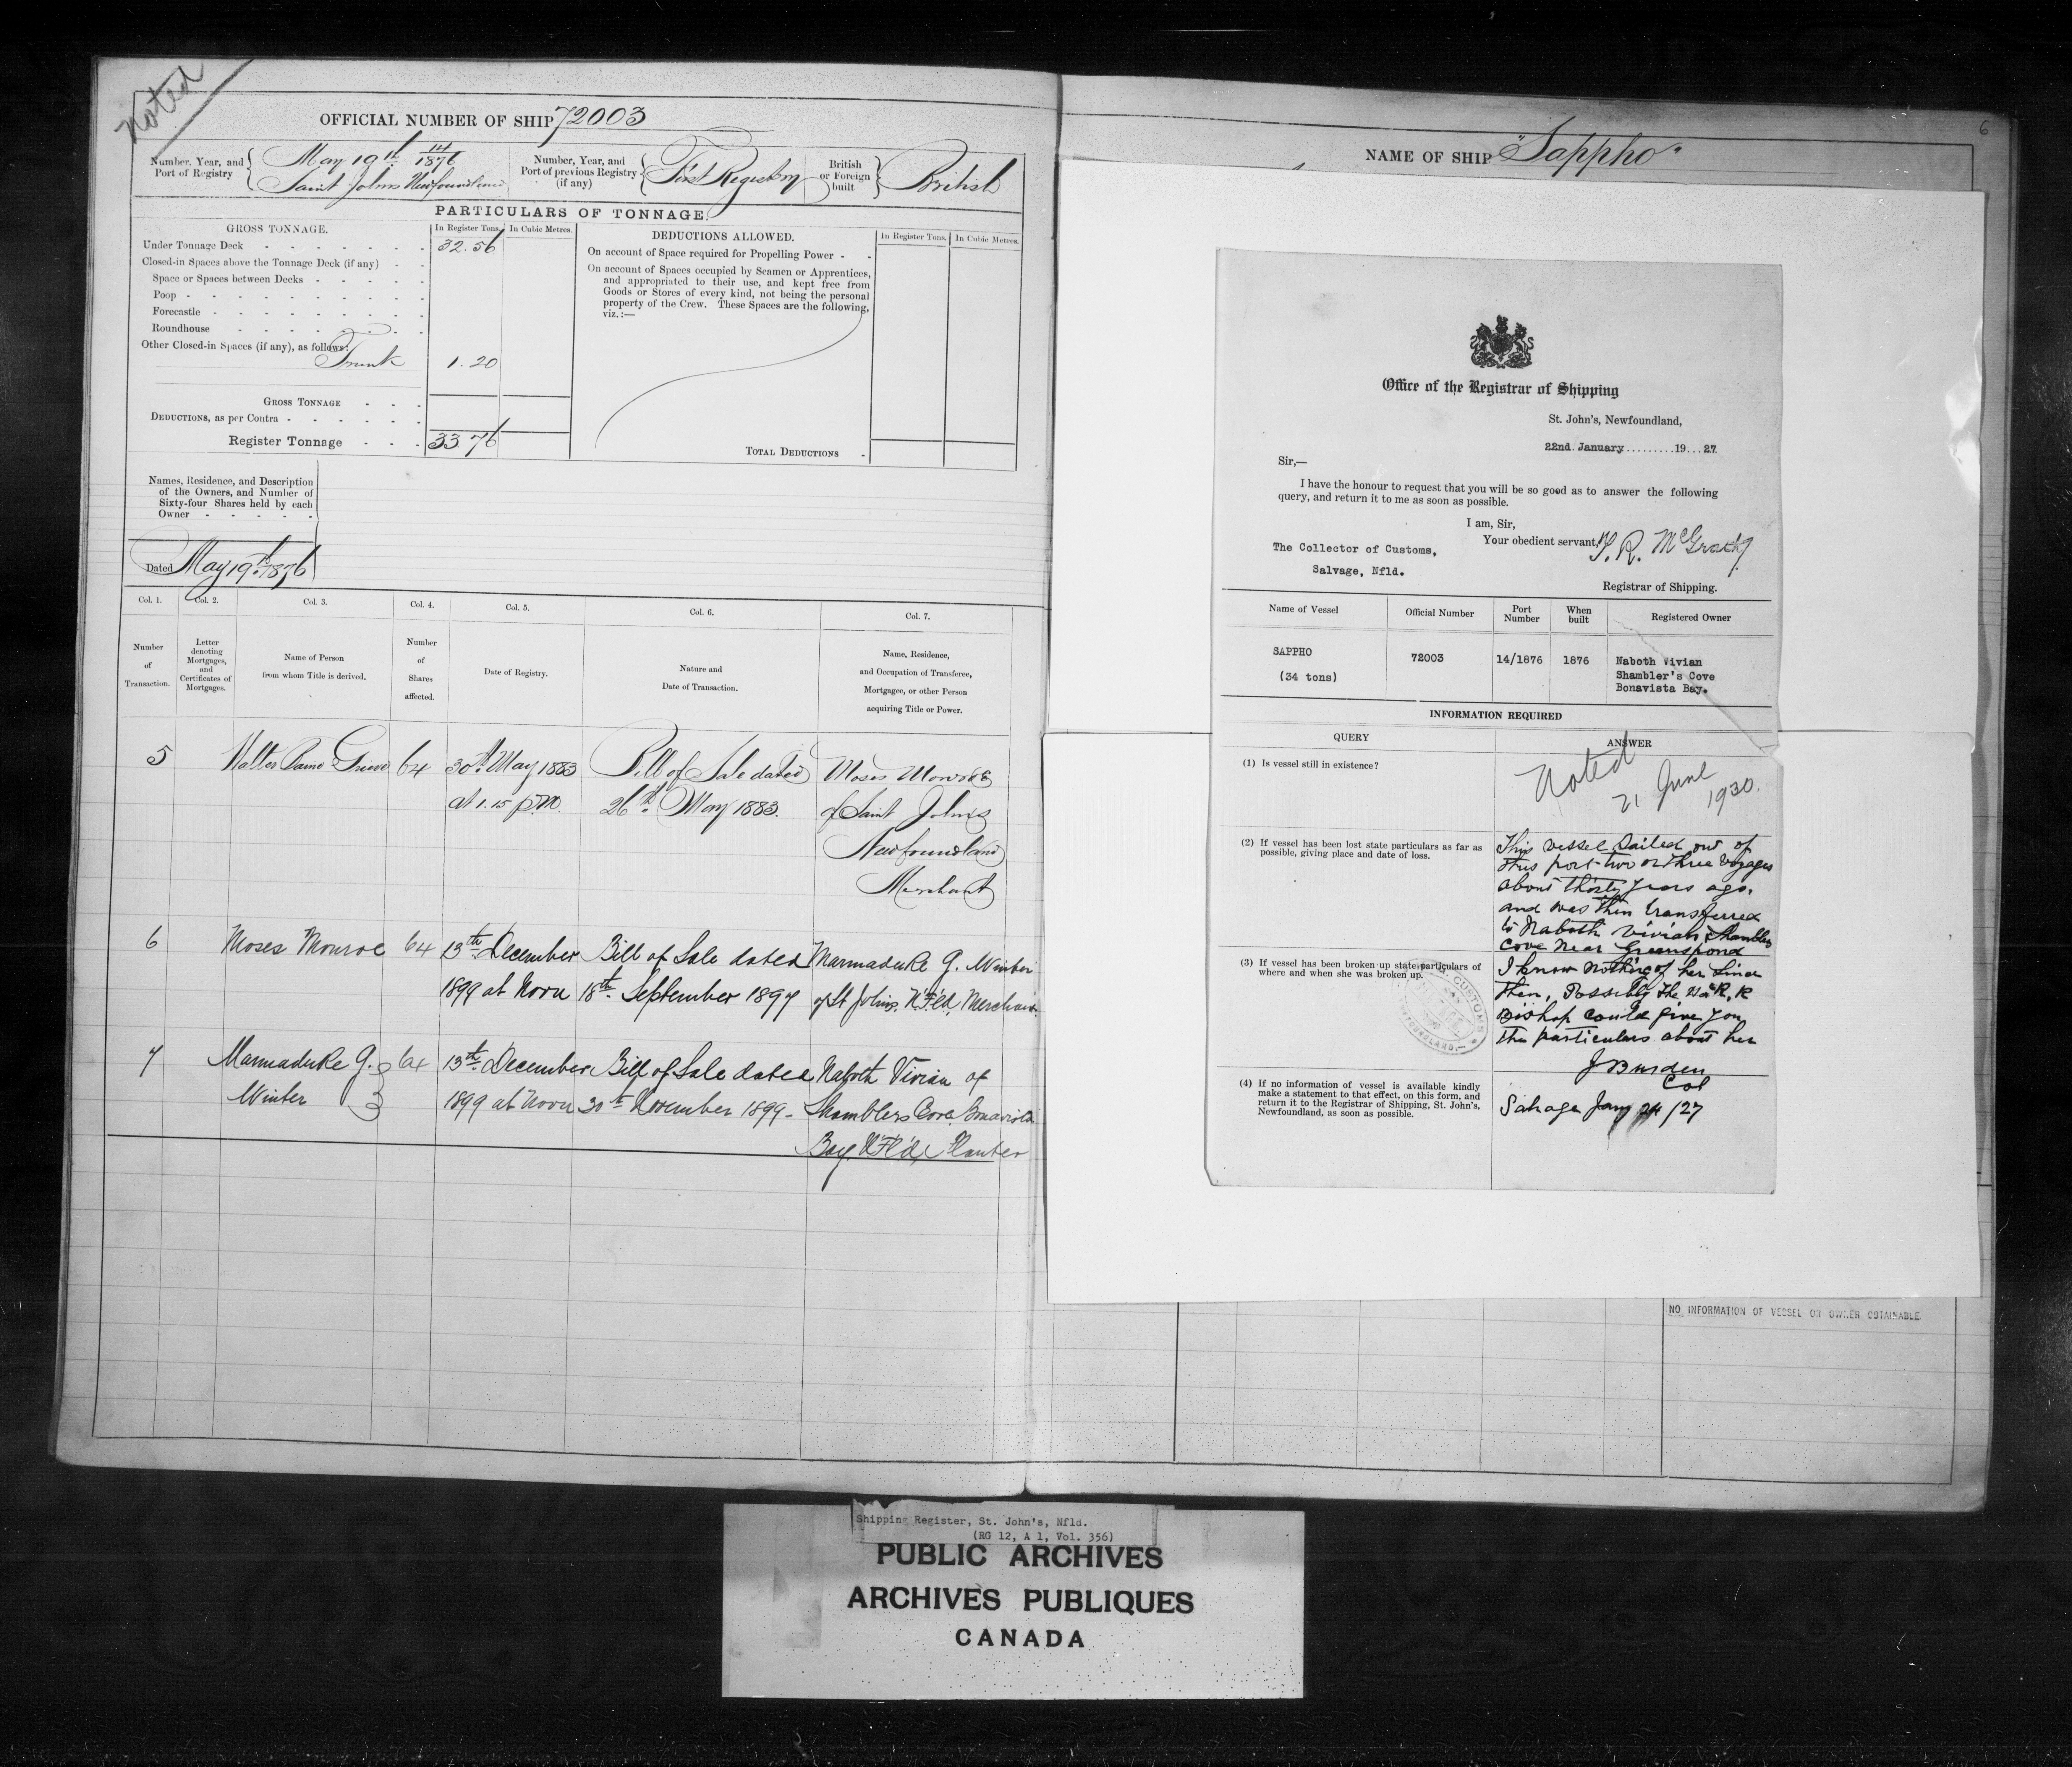 Noted
OFFICIAL NUMBER OF SHIP 72003
Number, Year, and
Port of Registry
May 19th 14/1876
Saint Johns Newfoundland
Number, Year, and
Port of previous Registry
(if any)
First Registry
British
or Foreign
built
British
PARTICULARS OF TONNAGE.
GROSS TONNAGE.
In Register Tons.
In Cubic Metres.
Under Tonnage Deck
32.56
Closed-in Spaces above the Tonnage Deck (if any)
Space or Spaces between Decks
Poop
Forecastle
Roundhouse
Other Closed-in Spaces (if any), as follows:
Trunk 1.20
GROSS TONNAGE
DEDUCTIONS, as per Contra
Register Tonnage 33 76
DEDUCTIONS ALLOWED.
In Register Tons.
In Cubic Metres.
On account of Space required for Propelling Power
On account of Spaces occupied by Seamen or Apprentices,
and appropriated to their use, and kept free from
Goods or Stores of every kind, not being the personal
property of the Crew. These Spaces are the following,
viz.:—
TOTAL DEDUCTIONS
Names, Residence, and Description
of the Owners, and Number of
Sixty-four Shares held by each
Owner
Dated May 19th 1876
Col. 1.
Number
of
Transaction.
Col. 2.
Letter
denoting
Mortgages,
and
Certificates of
Mortgages.
Col. 3.
Name of Person
from whom Title is derived.
Col. 4.
Number
of
Shares
affected.
Col. 5.
Date of Registry.
Col. 6.
Nature and
Date of Transaction.
Col. 7.
Name, Residence,
and Occupation of Transferee,
Mortgagee, or other Person
acquiring Title or Power.
5 Walter Baine Grieve 64 30th May 1883 Bill of Sale dated Moses Monroe
at 1.15 p.m. 26th May 1883. of Saint Johns
Newfoundland
Merchant
6 Moses Monroe 64 13th December Bill of Sale dated Marmaduke G. Winter
1899 at Noon 18th September 1897 of St Johns. N'F'ld, Merchant
7 Marmaduke G. 64 13th December Bill of Sale dated Naboth Vivian of
Winter 1899 at Noon 30th November 1899 - Shamblers Cove, Bonavista
Bay. N'F'ld, Planter
6
NAME OF SHIP "Sappho"
Office of the Registrar of Shipping
St. John's, Newfoundland,
22nd January.........19...27
Sir,—
I have the honour to request that you will be so good as to answer the following
query, and return it to me as soon as possible.
I am, Sir,
Your obedient servant,
McGrath
The Collector of Customs,
Salvage, Nfld.
Registrar of Shipping.
Name of Vessel
Official Number
Port
Number
When
built
Registered Owner
SAPPHO
(34 tons)
72003
14/1876
1876
Naboth Vivian
Shambler's Cove
Bonavista Bay.
INFORMATION REQUIRED
QUERY
ANSWER
(1) Is vessel still in existence?
Noted
21 June
1930.
(2) If vessel has been lost state particulars as far as
possible, giving place and date of loss.
This vessel Sailed out of
this port two or three voyages
about thirty years ago.
and was then transferred
to Naboth Vivian Shamblers
Cove near Greenspond
(3) If vessel has been broken up state particulars of
where and when she was broken up.
I know nothing of her since
then, Possibly the Hon R. K
Bishop could give you
the particulars about her
J Burden
Col
(4) If no information of vessel is available kindly
make a statement to that effect, on this form, and
return it to the Registrar of Shipping, St. John's,
Newfoundland, as soon as possible.
Salvage Jany 24/27
CUSTOMS
NEWFOUNDLAND
NO INFORMATION OF VESSEL OR OWNER OBTAINABLE
Shipping Register, St. John's, Nfld.
(RG 12, A 1, Vol. 356)
PUBLIC ARCHIVES
ARCHIVES PUBLIQUES
CANADA